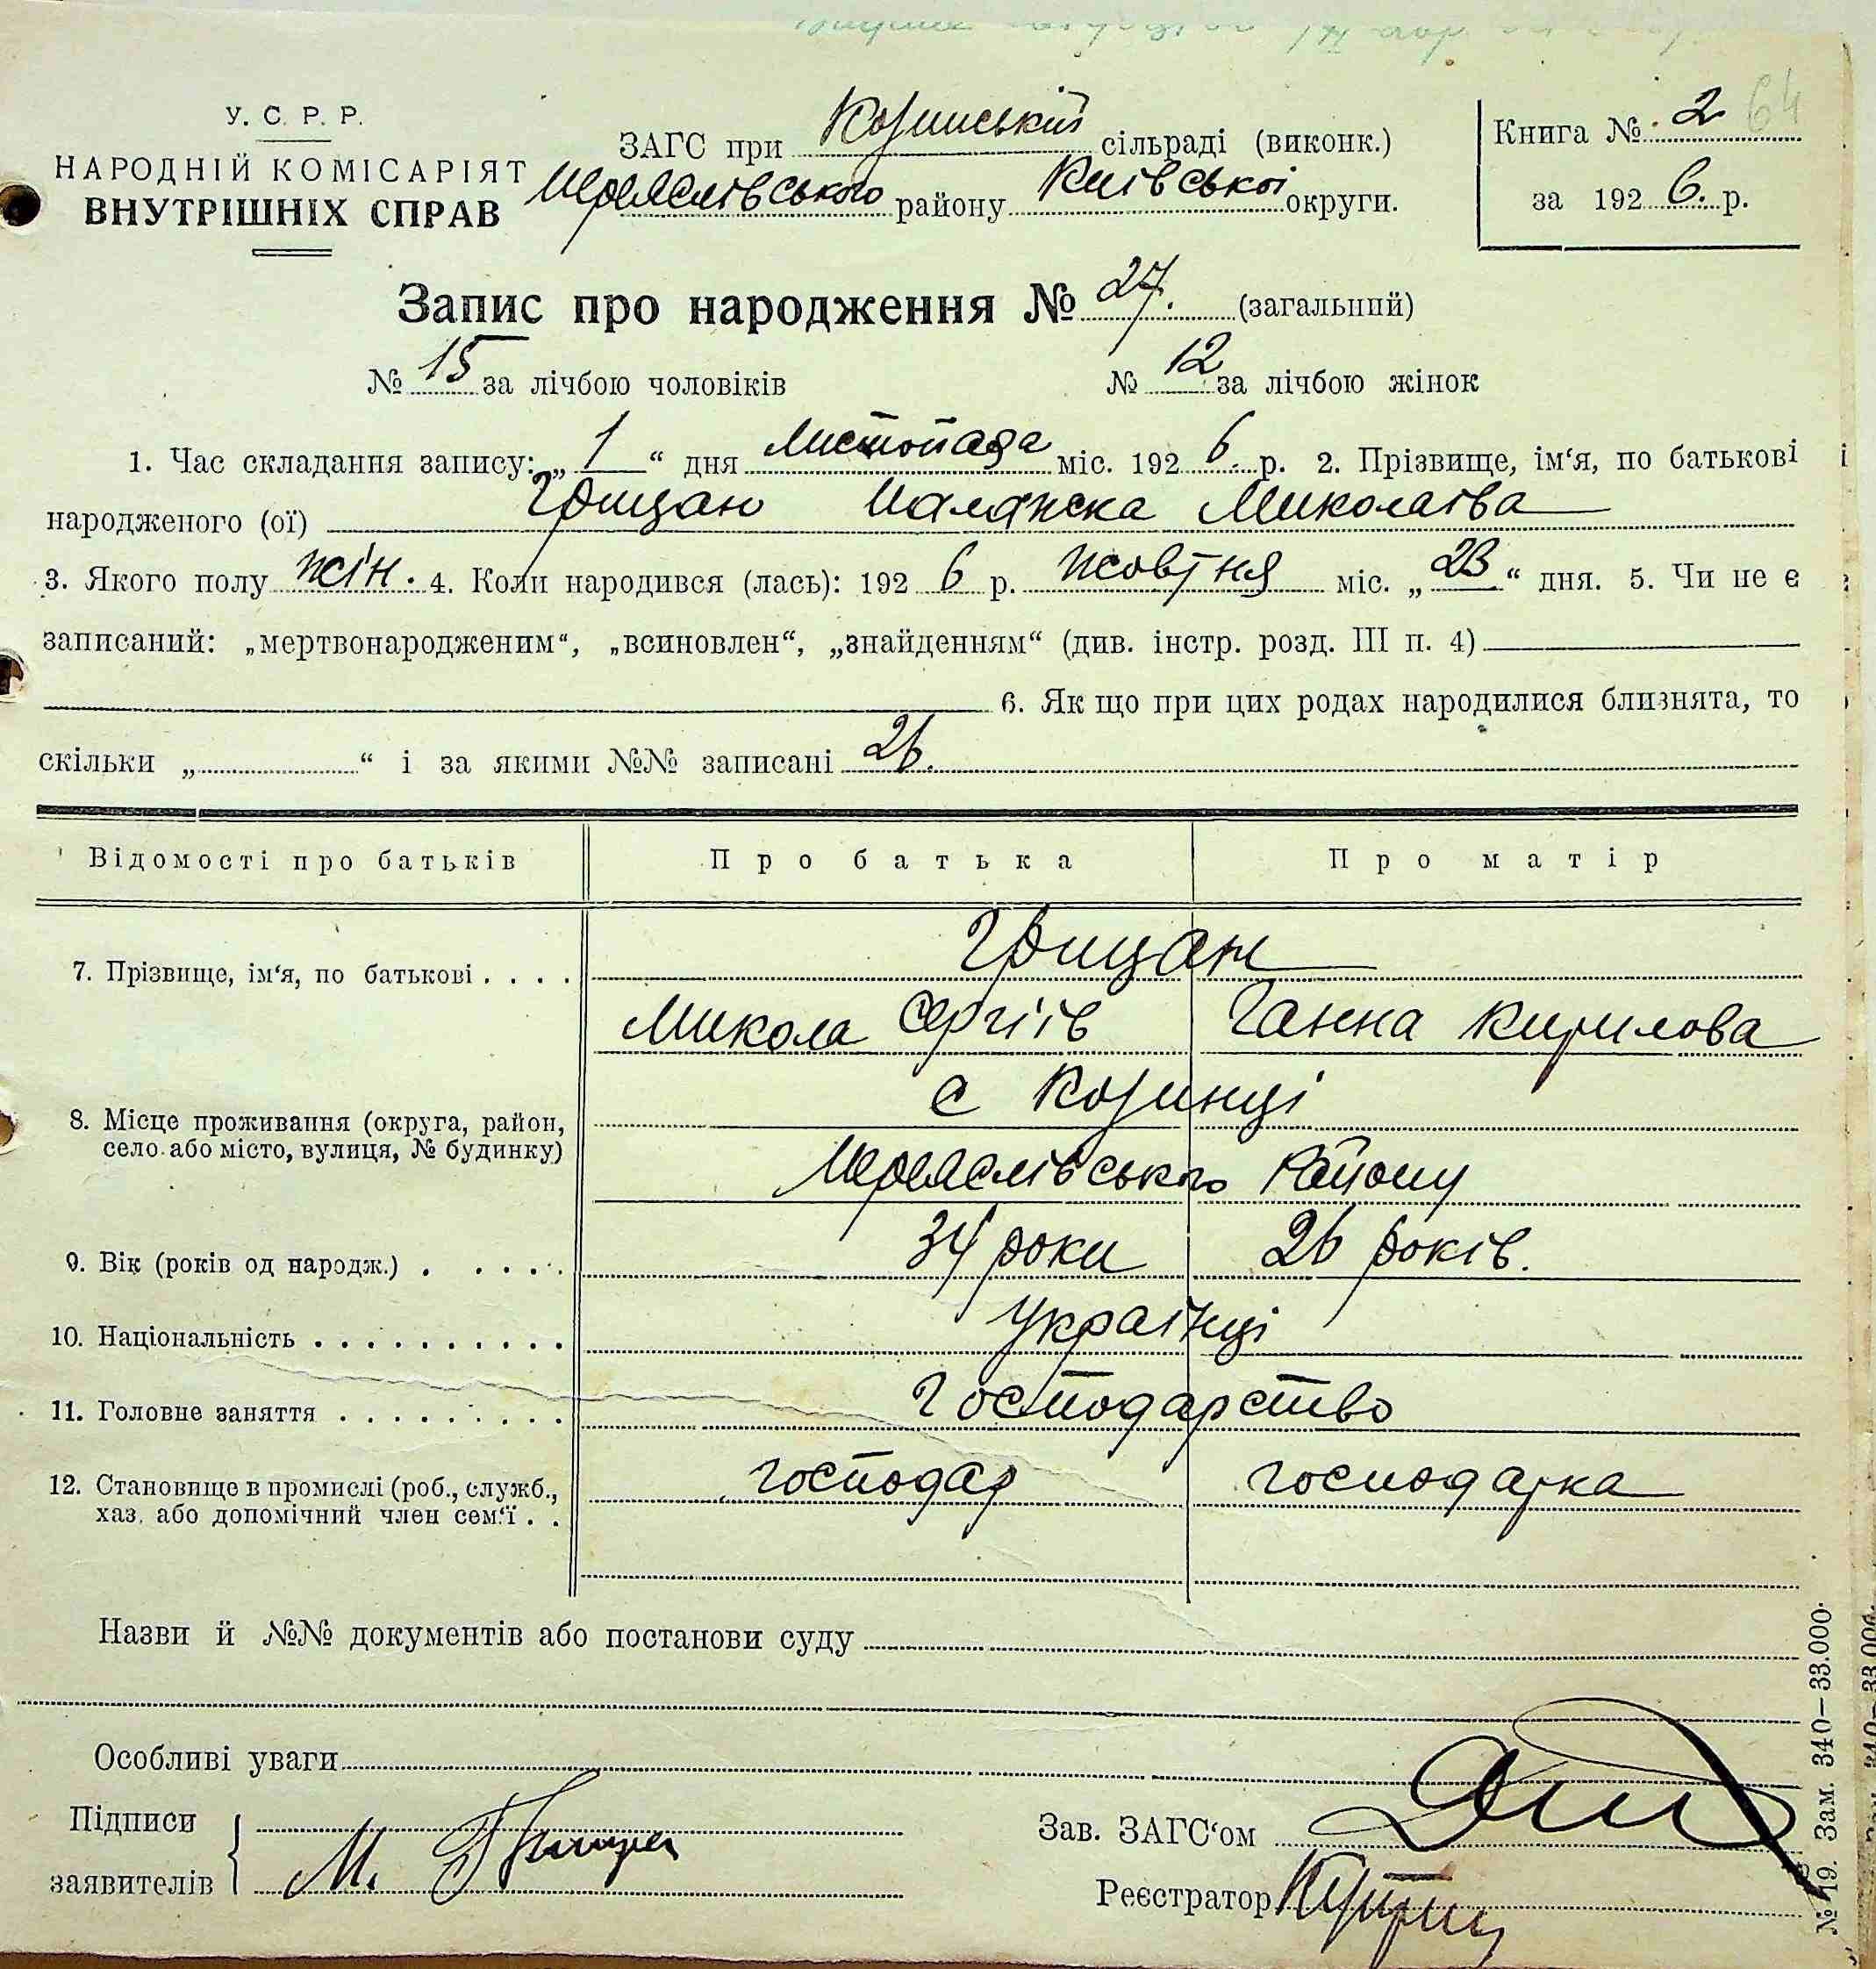 У. С. Р. Р.
НАРОДНІЙ КОМІСАРІЯТ
ВНУТРІШНІХ СПРАВ
ЗАГС при Козинській сільраді (виконк.)
Переяслівського району Київської округи.
Книга № 2 64
за 1926. р.
Запис про народження № 27. (загальний)
№ 15 за лічбою чоловіків № 12 за лічбою жінок
1. Час складання запису: „ 1 “ дня Листопада міс. 192 6. р. 2. Прізвище, ім‘я, по батькові
народженого (ої) Грицан Миколаєва
3. Якого полу жін. 4. Коли народився (лась): 192 6 р. жовтня міс. „ 23 “ дня. 5. Чи не є
записаний: „мертвонародженим“, „всиновлен“, „знайденням“ (див. інстр. розд. III п. 4)
6. Як що при цих родах народилися близнята, то
скільки „ “ і за якими №№ записані 26.
Відомості про батьків Про батька Про матір
7. Прізвище, ім‘я, по батькові . . . . Грицан
Микола Сергіїв Ганна Кирилова
8. Місце проживання (округа, район,
село або місто, вулиця, № будинку)
с Козинці
Переяслівського Району
9. Вік (років од народж.) . . . . . 34 роки 26 років.
10. Національність . . . . . . . . . . Українці
11. Головне заняття . . . . . . . . . Господарство
12. Становище в промислі (роб., служб.,
хаз. або допомічний член сем‘ї . .
господар господарка
Назви й №№ документів або постанови суду
Особливі уваги
Підписи
заявителів М.
Зав. ЗАГС‘ом
Реєстратор
№ 19. Зам. 340—33.000.